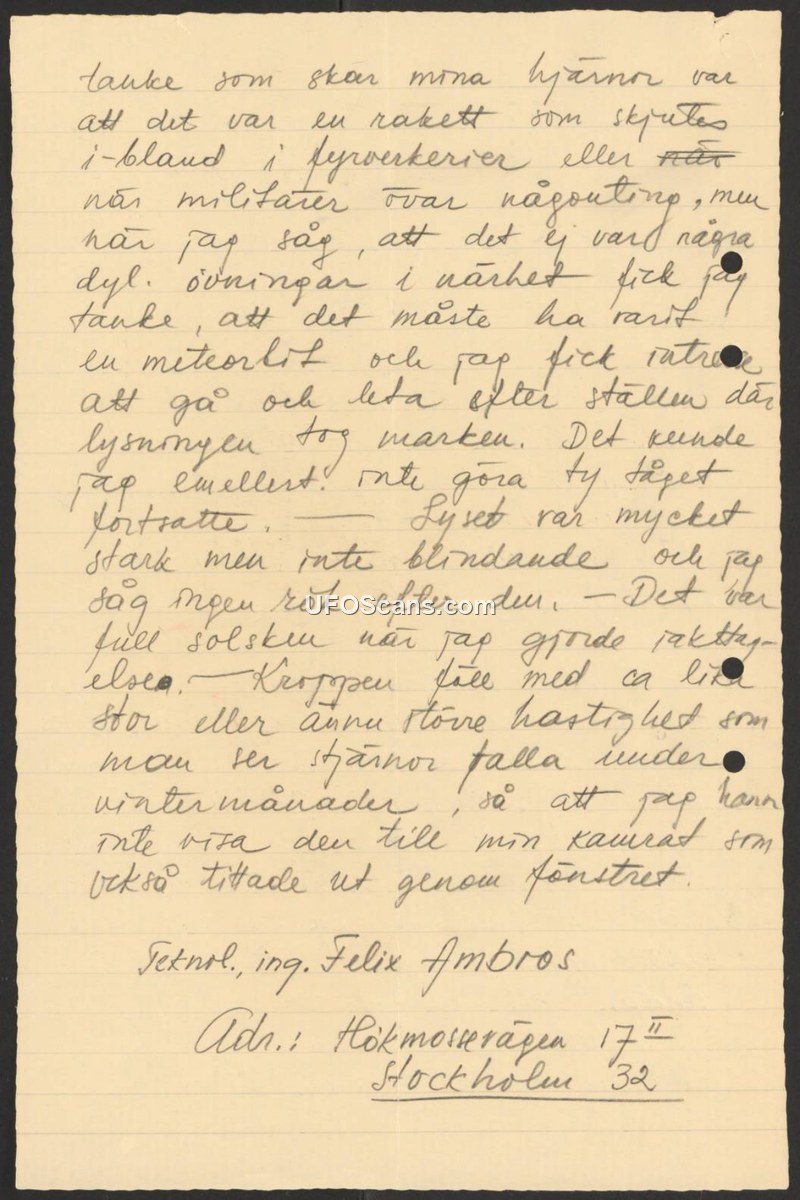 tanke som skar mina hjärnor var
att det var en rakett som skjutes
i-bland i fyrverkerier eller när
när militärer övar någonting, men
när jag såg, att det ej var några
dyl. övningar i närhet fick jag
tanke, att det måste ha varit
en meteorlit och jag fick intresse
att gå och leta efter ställen där
lysningen tog marken. Det kunde
jag emellert. inte göra ty tåget
fortsatte. — Lyset var mycket
stark men inte blindande och jag
såg ingen rök efter den. — Det var
full solsken när jag gjorde iakttag-
elsen. — Kroppen föll med ca lika
stor eller ännu större hastighet som
man ser stjärnor falla under
vintermånader, så att jag hann
inte visa den till min kamrat som
också tittade ut genom fönstret.
Teknol., ing. Felix Ambros
Adr.: Hökmossevägen 17 II
Stockholm 32
UFOScans.com